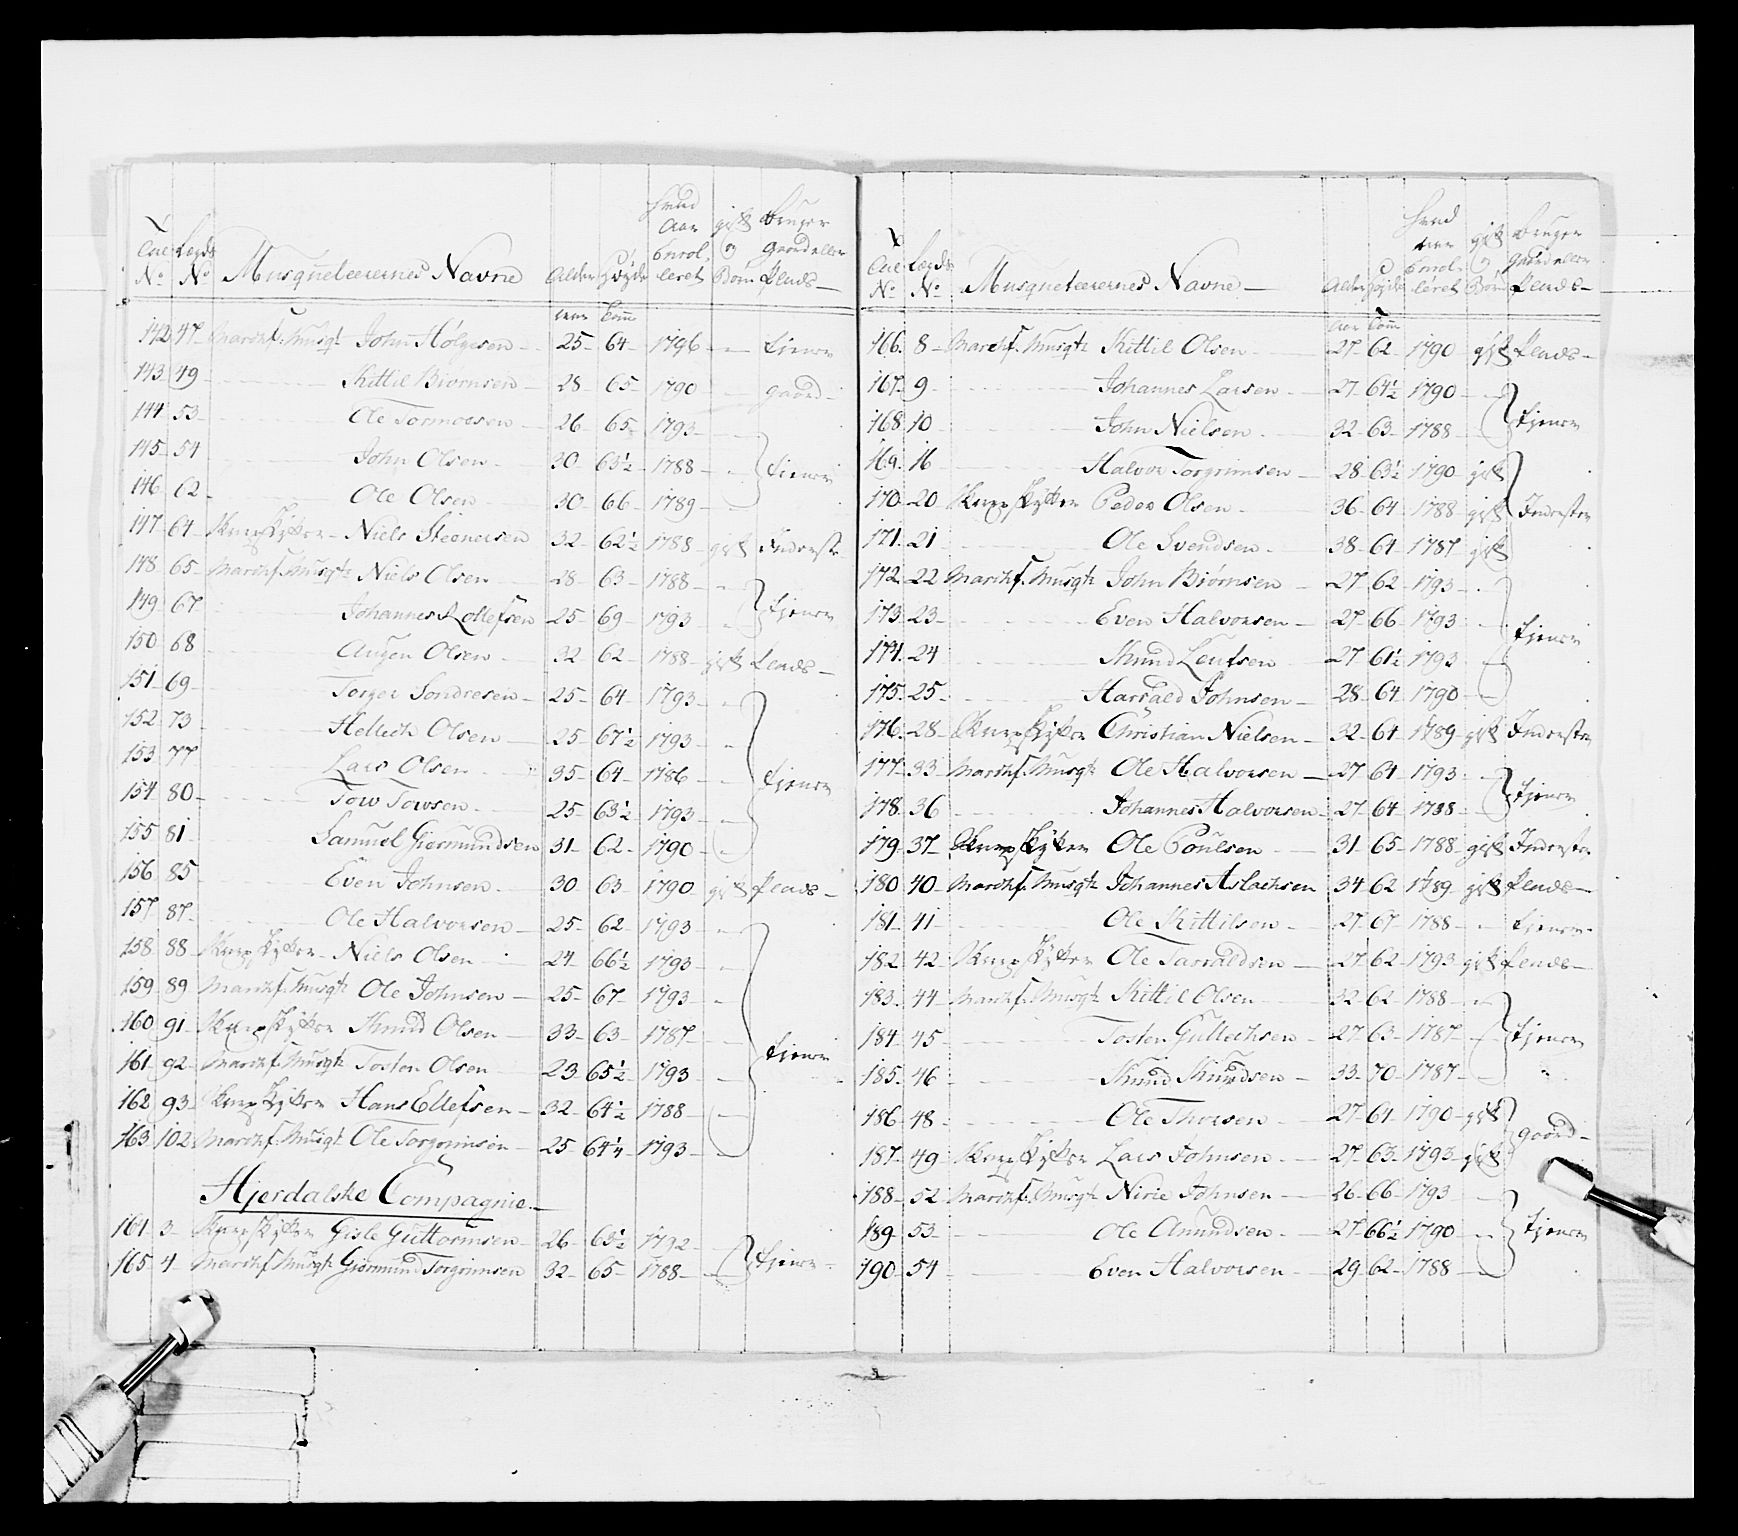 Hvad
Aar gift Bruger
Tal Legds Enrol- og Gaard eller
No No Musqueteerernes Navne Alder Høyde leret Børn Plads
Aar Tom̄
142 47 Marchf. Musqt John Holgesen 25 64 1796 - tjener
143 49 Kittil Biørnsen 28 65 1790 - gaard
144 53 Ole Tormoesen 26 65 1793 -
145 54 John Olsen 30 63½ 1788 - tjener
146 62 Ole Olsen 30 66 1789 -
147 64 Skarpskytter Niels Steenersen 32 62½ 1788 gift Inderste
148 65 Marchf. Musqt Niels Olsen 28 63 1788 -
149 67 Johannes Rollefsen 25 69 1793 - tjener
150 68 Augon Olsen 32 62 1788 gift Plads
151 69 Torger Sondresen 25 64 1793 -
152 73 Hellech Olsen 25 67½ 1793 -
153 77 Lars Olsen 35 64 1786 - tjener
154 80 Tow Towsen 25 63½ 1793 -
155 81 Samuel Giermundsen 31 62 1790 -
156 85 Even Johnsen 30 63 1790 gift Plads
157 87 Ole Halvorsen 25 62 1793 -
158 88 Skarpskytter Niels Olsen 24 66½ 1793 -
159 89 Marchf. Musqt Ole Johnsen 25 67 1793 -
160 91 Skarpskytter Knud Olsen 33 63 1787 -
161 92 Marchf. Musqt Tosten Olsen 23 65½ 1793 - tjener
162 93 Skarpskytter Hans Ellefsen 32 64½ 1788 -
163 102 Marchf. Musqt Ole Torgrimsen 25 64¼ 1793 -
Hjerdalske Compagnie
164 3 Skarpskytter Gisle Guttormsen 26 65½ 1792 -
165 4 Marchf. Musqt Giermund Torgrimsen 32 65 1788 - tjener
Hvad
Aar gift Bruger
Tal Legds Enrol- og Gaard eller
No No Musqueteerernes Navne Alder Høyde leret Børn Plads
Aar Tom̄
166 8 Marchf. Musqt Kittil Olsen 27 62 1790 gift Plads
167 9 Johannes Larsen 27 64½ 1790 -
168 10 John Nielsen 32 63 1788 - tjener
169 16 Halvor Torgrimsen 28 63½ 1790 gift
170 20 Skarpskytter Peder Olsen 36 64 1788 gift Inderster
171 21 Ole Svendsen 38 64 1787 gift
172 22 Marchf. Musqt John Biørnsen 27 62 1793 -
173 23 Even Halvorsen 27 66 1793 - tjener
174 24 Knud Leufsen 27 61½ 1793 -
175 25 Harrald Johnsen 28 64 1790 -
176 28 Skarpskytter Christian Nielsen 32 64 1789 gift Inderster
177 33 Marchf. Musqt Ole Halvorsen 27 64 1793 -
178 36 Johannes Halvorsen 27 64 1788 - tjener
179 37 Skarpskytter Ole Poulsen 31 65 1788 gift Inderster
180 40 Marchf. Musqt Johannes Aslachsen 34 62 1789 gift Plads
181 41 Ole Kittilsen 27 67 1788 - tjener
182 42 Skarpskytter Ole Tarraldsen 27 62 1793 gift Plads
183 44 Marchf. Musqt Kittil Olsen 32 62 1788 -
184 45 Tosten Gullechsen 27 63 1787 - tjener
185 46 Knud Knudsen 33 70 1787 -
186 48 Ole Thorsen 27 64 1790 gift
187 49 Skarpskytter Lars Johnsen 27 63 1793 gift gaard
188 52 Marchf. Musqt Nirie Johnsen 26 66 1793 -
189 53 Ole Amundsen 27 66½ 1790 - tjener
190 54 Even Halvorsen 29 62 1788 -